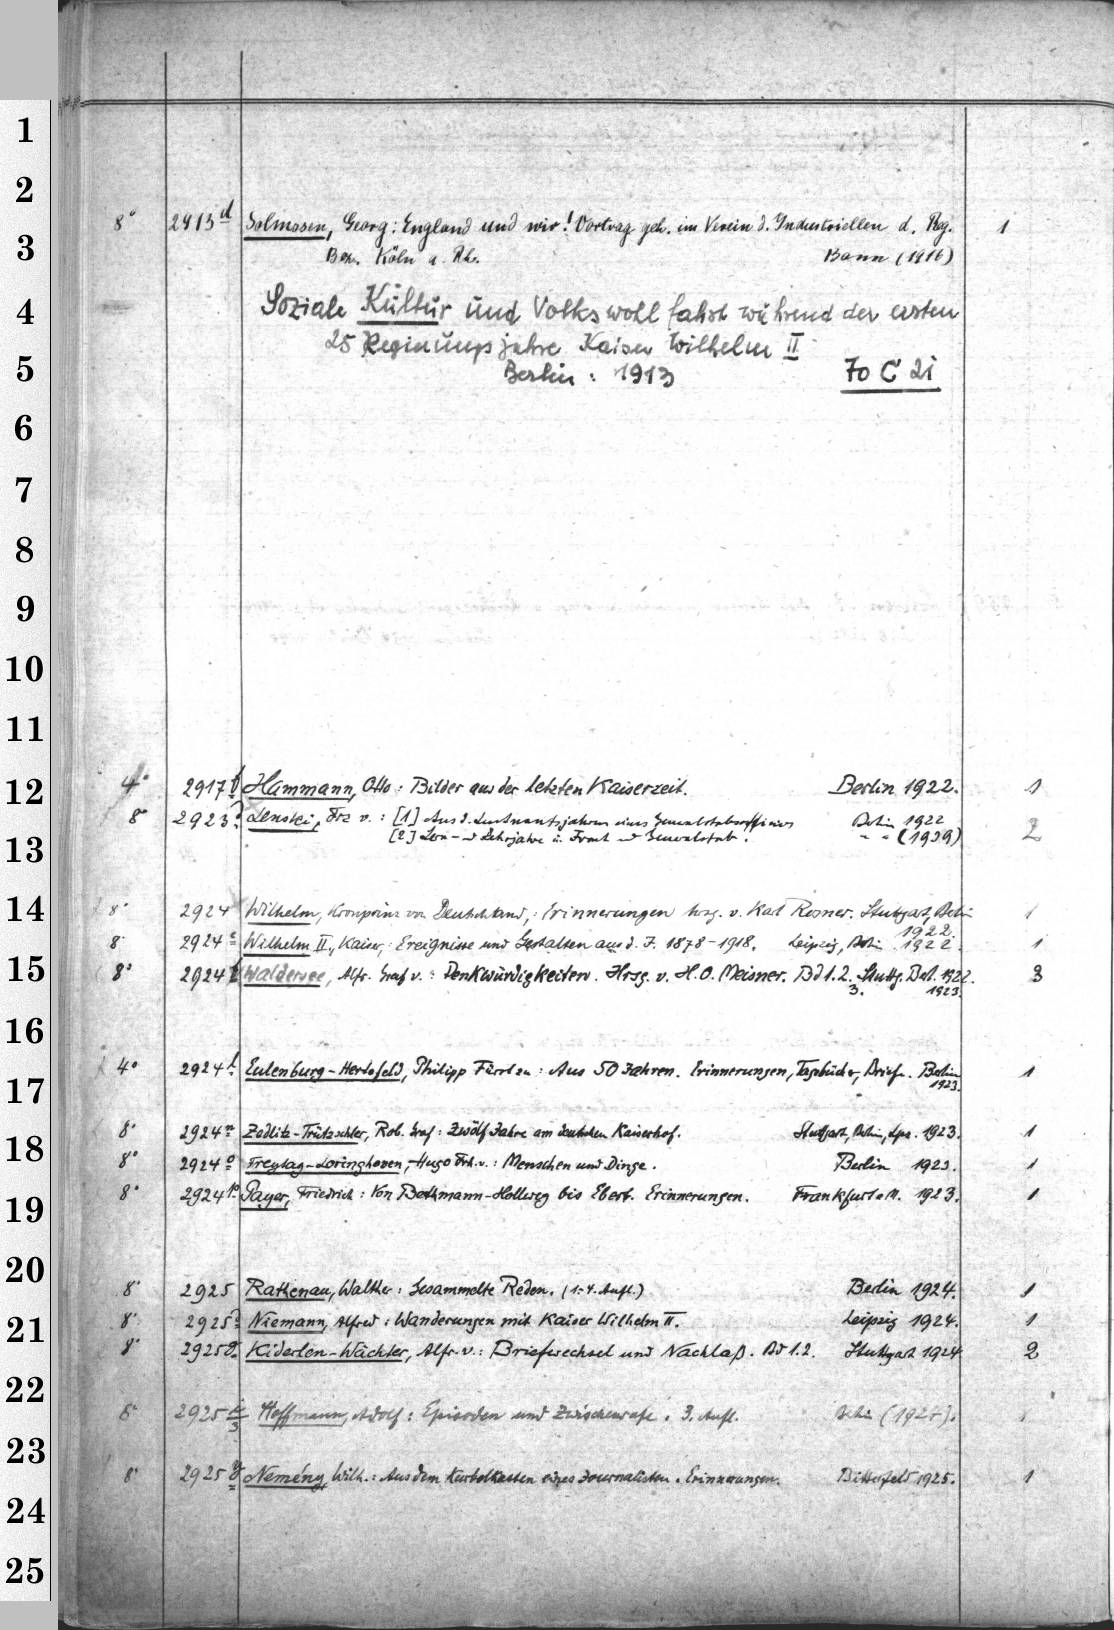 1
2
8° 2913 d Solmssen, Georg: England und wir! Vortrag geh. im Verein d. Industriellen d. Reg. 1
3
Bez. Köln a. Rh. Bonn (1916)
4
Soziale Kultur und Volkswohlfahrt während der ersten
25 Regierungsjahre Kaiser Wilhelm II
5
Berlin: 1913 70 C 2i
6
7
8
9
10
11
12
4° 2917 Hammann, Otto: Bilder aus der letzten Kaiserzeit. Berlin 1922. 1
8° 2923 Lenski, Frz v.: [1] Aus d. Leutnantsjahren eines Generalstabsoffiziers Berlin 1922 2
13
[2] Lern- u Lehrjahre in Front u Generalstab. " " (1939)
14
8° 2924 Wilhelm, Kronprinz von Deutschland,: Erinnerungen hrsg. v. Karl Rosner. Stuttgart, Berlin 1
1922.
8° 2924 e Wilhelm II., Kaiser,: Ereignisse und Gestalten aus d. J. 1878-1918. Leipzig, Berlin 1922. 1
15
8° 2924 Waldersee, Alfr. Graf v.: Denkwürdigkeiten. Hrsg. v. H. O. Meisner. Bd 1.2. Stuttg. Berl. 1922. 3
3. 1923.
16
4° 2924 l Eulenburg-Hertefeld, Philipp Fürst zu: Aus 50 Jahren. Erinnerungen, Tagebücher, Briefe. Berlin 1
17
1923.
18
8° 2924 n Zedlitz-Trützschler, Rob. Graf: Zwölf Jahre am deutschen Kaiserhof. Stuttgart, Berlin, Lpz. 1923. 1
8° 2924 o Freytag-Loringhoven, Hugo Frh. v.: Menschen und Dinge. Berlin 1923. 1
19
8° 2924 p Payer, Friedrich: Von Bethmann-Hollweg bis Ebert. Erinnerungen. Frankfurt a M. 1923. 1
20
8° 2925 Rathenau, Walther: Gesammelte Reden. (1.-4. Aufl.) Berlin 1924. 1
21
8° 2925 Niemann, Alfred: Wanderungen mit Kaiser Wilhelm II. Leipzig 1924. 1
8° 2925 g Kiderlen-Wächter, Alfr. v.: Briefwechsel und Nachlaß. Bd 1.2. Stuttgart 1924 2
22
8° 2925 Hoffmann, Adolf: Episoden und Zwischenrufe. 3. Aufl. Berlin (1924). 1
23
8° 2925 y Nemény, Wilh.: Aus dem Kurbelkasten eines Journalisten. Erinnerungen. Bitterfeld 1925. 1
24
25